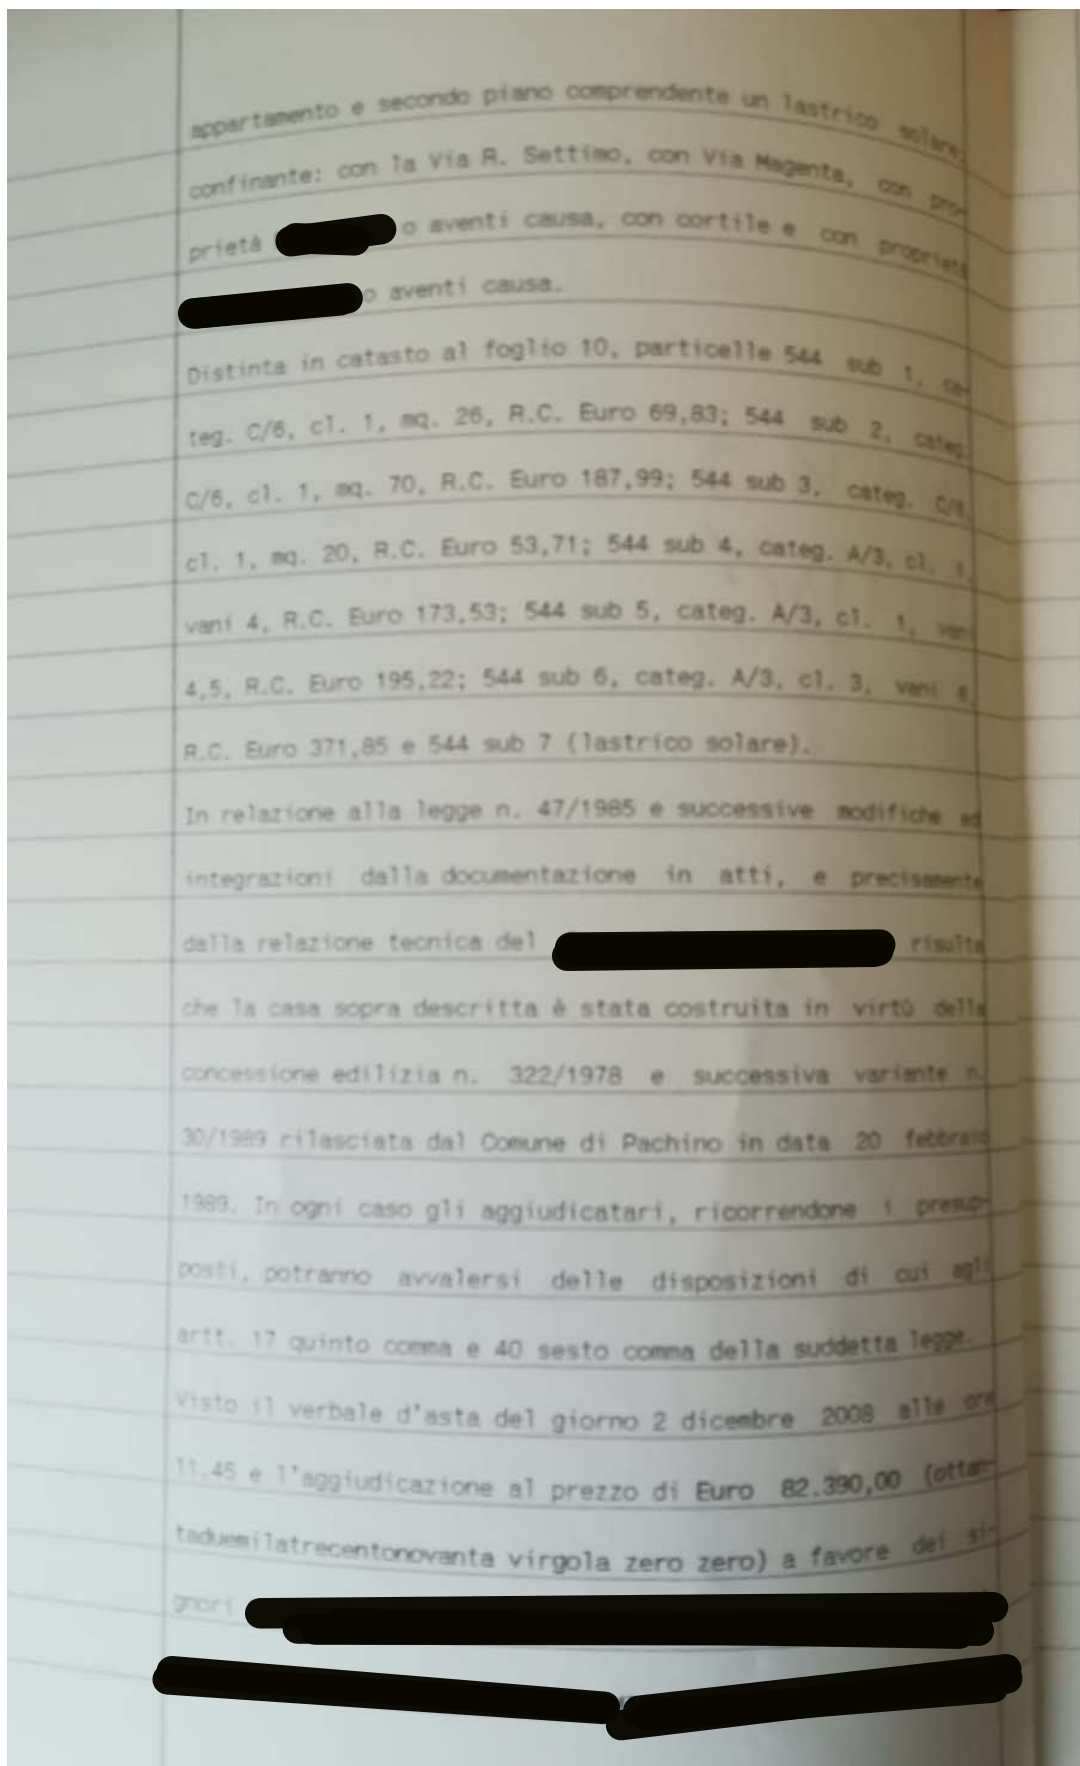 appartamento e secondo piano comprendente un lastrico solare,
confinante: con la Via R. Settimo, con Via Magenta, con pro-
prietà o aventi causa, con cortile e con proprietà
o aventi causa.
Distinta in catasto al foglio 10, particelle 544 sub 1, ca-
teg. C/6, cl. 1, mq. 26, R.C. Euro 69,83; 544 sub 2, categ.
C/6, cl. 1, mq. 70, R.C. Euro 187,99; 544 sub 3, categ. C/6,
cl. 1, mq. 20, R.C. Euro 53,71; 544 sub 4, categ. A/3, cl. 1,
vani 4, R.C. Euro 173,53; 544 sub 5, categ. A/3, cl. 1, vani
4,5, R.C. Euro 195,22; 544 sub 6, categ. A/3, cl. 3, vani
R.C. Euro 371,85 e 544 sub 7 (lastrico solare).
In relazione alla legge n. 47/1985 e successive modifiche ed
integrazioni dalla documentazione in atti, e precisamente
dalla relazione tecnica del risulta
che la casa sopra descritta è stata costruita in virtù della
concessione edilizia n. 322/1978 e successiva variante n.
30/1989 rilasciata dal Comune di Pachino in data 20 febbraio
1989. In ogni caso gli aggiudicatari, ricorrendone i presup-
posti, potranno avvalersi delle disposizioni di cui agli
artt. 17 quinto comma e 40 sesto comma della suddetta legge.
Visto il verbale d'asta del giorno 2 dicembre 2008 alle ore
11.45 e l'aggiudicazione al prezzo di Euro 82.390,00 (ottan-
taduemilatrecentonovanta virgola zero zero) a favore dei si-
gnori